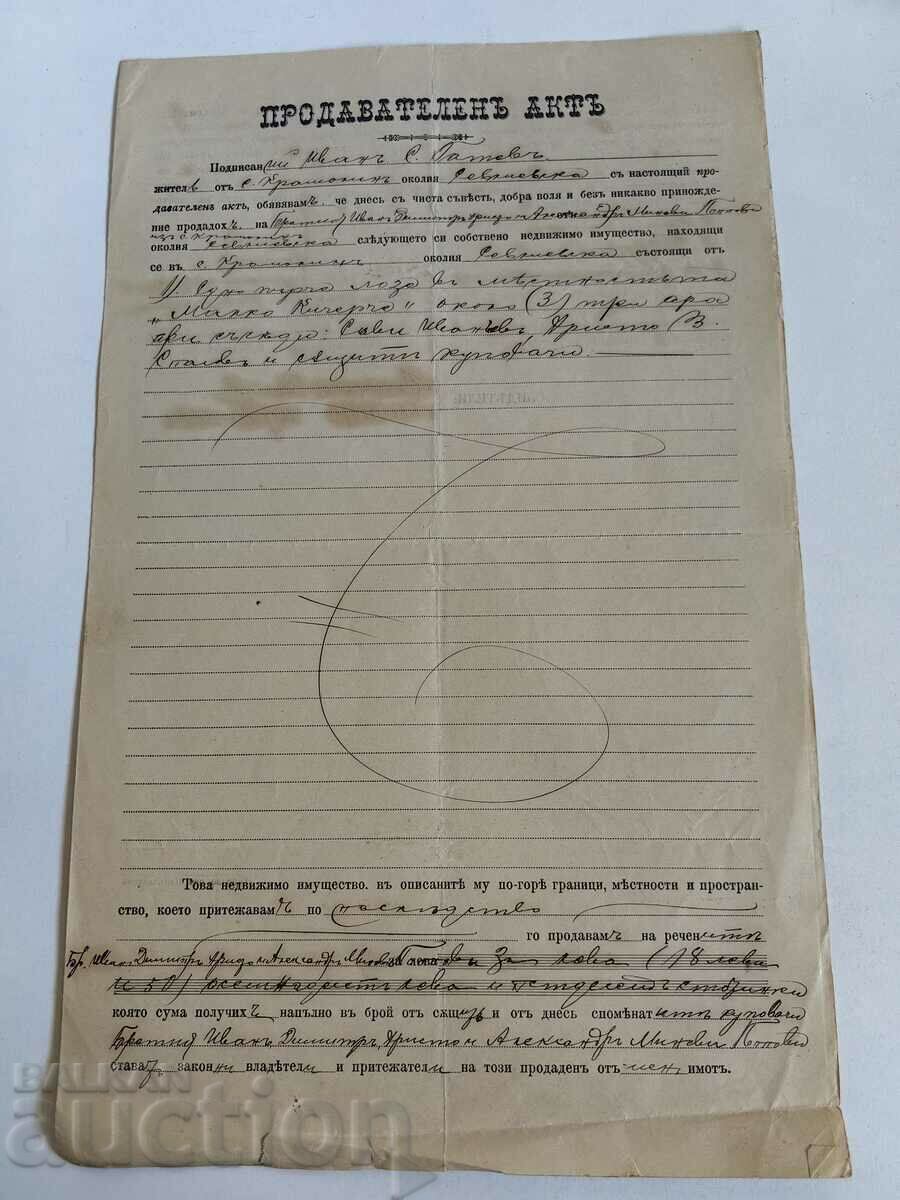 ПРОДАВАТЕЛЕНЪ АКТЪ
Подписаний Иванъ С. Гатевъ
жителъ отъ с. Крамолинъ околия Севлиевска съ настоящий про-
давателенъ актъ, обявявамъ че днесь съ чиста съвѣсть, добра воля и безъ никакво приножде-
ние продадохъ на Братия Иванъ Димитръ Христо и Александръ Минови Попови
изъ с. Крамолинъ
околия Севлиевска слѣдующето си собствено недвижимо имущество, находящи
се въ с. Крамолинъ околия Севлиевска състояти отъ
1/. лоза въ мѣстностьта
„Малко Кичерче“ около (3) три ара
при съседи: Иванъвъ, Христо В.
и същитѣ купувачи.
Това недвижимо имущество. въ описанитѣ му по-горѣ граници, мѣстности и простран-
ство, което притежавамъ по наследство
го продавамъ на реченитѣ
Бр. Иванъ Димитръ Христо и Александръ Минови Попови за лева (18 лева
и 50) осемнадесетъ лева и петдесетъ стотинки
която сума получихъ напълно въ брой отъ сѫщиѣ и отъ днесь споменатитѣ купувачи
Братия Иванъ Димитръ, Христо и Александръ Минови Попови
ставатъ законни владѣтели и притежатели на този продаденъ отъ менъ имотъ.
BALKAN
auction